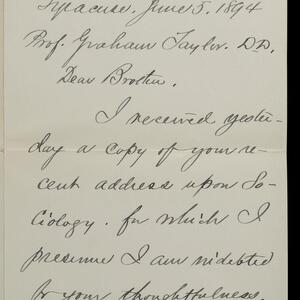 Syracuse. June 5. 1894
Prof. Graham Taylor. D.D.
Dear Brother.
I received yester-
day a copy of your re-
cent address upon So-
ciology. for which I
presume I am indebted
to your thoughtfulness.